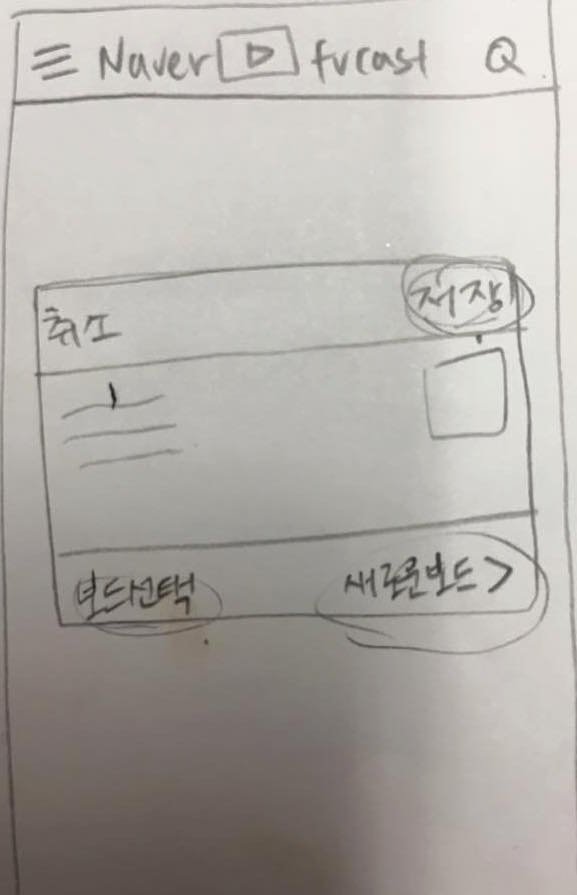 Naver tvcast
취소 저장
보드선택 새로운보드 >